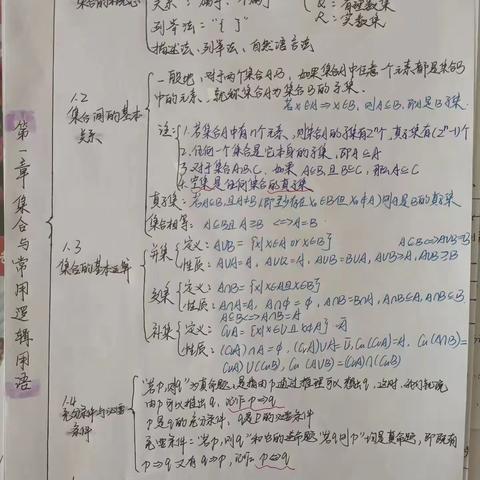 第一章 集合与常用逻辑用语
Q：有理数集
R：实数集
列举法："{ }"
描述法、列举法、自然语言法
1.2
集合间的基本
关系
一般地，对于两个集合A,B，如果集合A中任意一个元素都是集合B
中的元素，就称集合A为集合B的子集.
若x∈A⇒x∈B，则A⊆B，
注：1.若集合A中有n个元素，则集合A的子集有2ⁿ个，真子集有(2ⁿ-1)个
2.任何一个集合是它本身的子集，即A⊆A
3.对于集合A.B.C，如果A⊆B,且B⊆C，那么A⊆C
4.空集是任何集合的真子集
真子集：若A⊆B,且A≠B(即至少存在x₀∈B但x₀∉A)则A是B的真子集
集合相等：A⊆B且A⊇B <=>A=B
1.3
集合的基本运算
并集
定义：A∪B={x|x∈A or x∈B}
A⊆B<=>A∪B=B
性质：A∪A=A，A∪B=B∪A，A∪B⊇A，A∪B⊇B
交集
定义：A∩B={x|x∈A且x∈B}
性质：A∩A=A，A∩φ=φ，A∩B=B∩A，A∩B⊆A，A∩B⊆B
A⊆B<=>A∩B=A
补集
定义：CuA={x|x∈U且x∉A}
性质：(CuA)∩A=φ，(CuA)∪A=U，Cu(CuA)=A，Cu(A∩B)=
(CuA)∪(CuB)，Cu(A∪B)=(CuA)∩(CuB)
1.4
充分条件与必要
条件
"若p，则q"为真命题，是指由p通过推理可以推出q，这时，我们就说
由p可以推出q，记作p⇒q
p是q的充分条件，q是p的必要条件
充要条件："若p，则q"和它的逆命题"若q则p"均是真命题，即既有
p⇒q 又有q⇒p，记作p⇔q